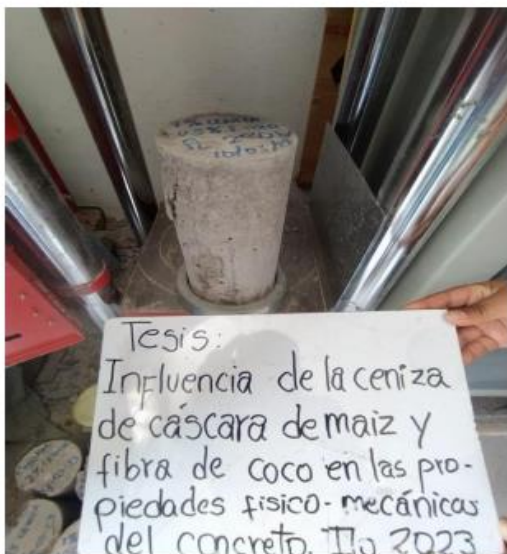 Tesis:
Influencia de la ceniza
de cáscara de maiz y
fibra de coco en las pro-
piedades fisico-mecánicas
del concreto. Ilo 2023